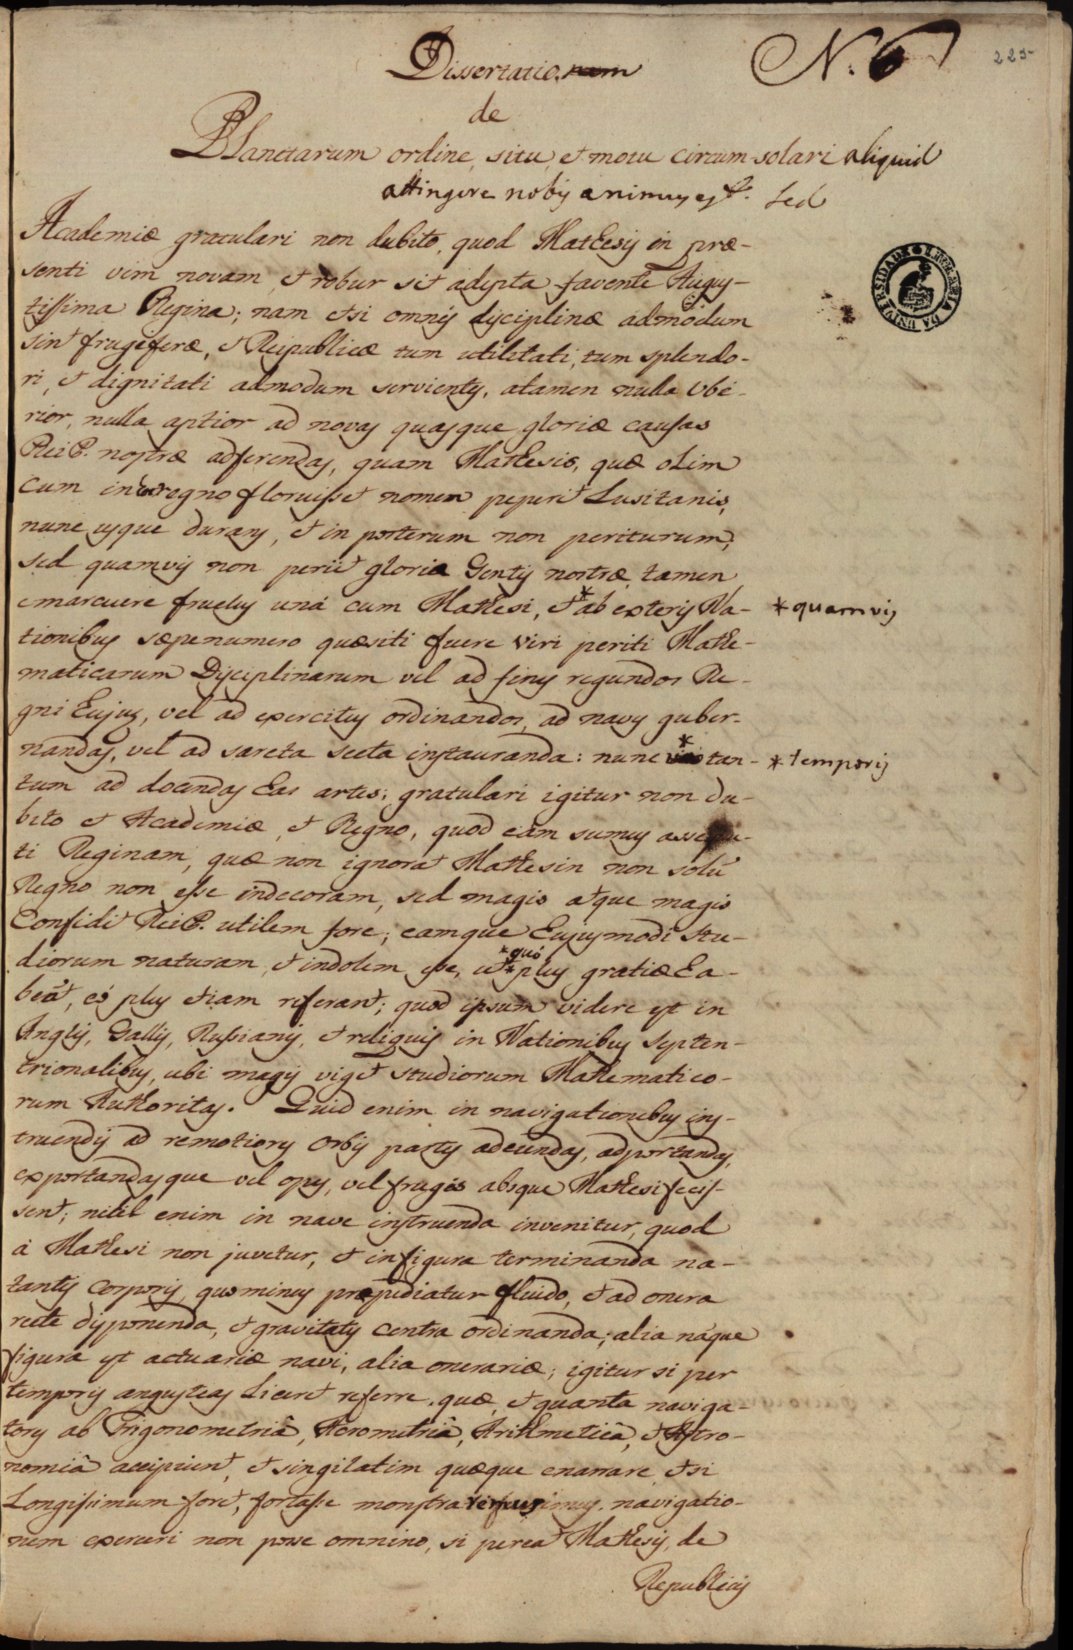 N. 6
225
Dissertatio nam
de
Planetarum ordine, situ, et motu circum-solari aliquid
attingere nobis animus est. Sed
Academiæ gratulari non dubito, quod Mathesis in præ-
senti vim novam, et robur sit adepta favente Augus-
tissima Regina; nam etsi omnis disciplinæ admodum
sint frugiferæ, et Reipublicæ tum utilitati, tum splendo-
ri, et dignitati admodum servientes, atamen nulla Ube-
rior, nulla aptior ad novas quasque gloriæ causas
ReiP. nostræ adferendas, quam Mathesis, quæ olim
cum in regno floruisset nomen peperit Lusitanis,
nunc usque durans, et in posterum non periturum;
sed quamvis non periit gloria Gentis nostræ, tamen
emarcuere fructus uná cum Mathesi, et * ab exteris Na-
* quamvis
tionibus sæpenumero quæsiti fuere viri periti Mathe-
maticarum Disciplinarum vel ad fines regundos Re-
gni Eujus, vel ad exercitus ordinandos, ad naves guber-
nandas, vel ad sarcta tecta instauranda: nunc * tan-
* temporis
tum ad docendas Eas artes; gratulari igitur non du-
bito et Academiæ, et Regno, quod eam sumus assequu-
ti Reginam, quæ non ignorat Mathesin non solũ
Regno non esse indecoram, sed magis atque magis
Confidit ReiP. utilem fore; eamque Eujusmodi Stu-
diorum naturam, et indolem esse, ut * quó plus gratiæ Ea-
beãt, eó plus etiam referant; quod ipsum videre est in
Anglis, Gallis, Russianis, et reliquis in Nationibus Septen-
trionalibus, ubi magis viget studiorum Mathematico-
rum Authoritas. Quid enim in navigationibus ins-
truendis ad remotiores Orbis partes adeundas, adportandas,
exportandasque vel opes, vel fruges absque Mathesi fecis-
sent; nihil enim in nave instruenda invenitur, quod
á Mathesi non juvetur, et in figura terminanda na-
tantis Corporis, quominus præpediatur fluido, et ad onera
recte disponenda, et gravitatis centra ordinanda; alia náque
figura est actuariæ navi, alia onerariæ; igitur si per
temporis angustias Liceret referre, quæ, et quanta naviga-
tores ab Trigonometriâ, Aerometriâ, Arithmeticâ, et Astro-
nomiâ accipiunt, et singilatim quæque enarrare, etsi
Longissimum foret, fortasse navigatio-
nem exerceri non posse omnino, si pereat Mathesis, de
Republicis